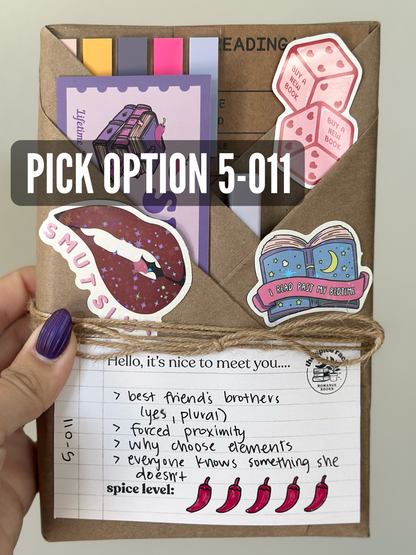 READING
BUY A
NEW
BOOK
BUY A
NEW
BOOK
Lifetime
PICK OPTION 5-011
SMUTSL
I READ PAST MY BEDTIME
Hello, it's nice to meet you....
ROMANCE
BOOKS
> best friend's brothers
(yes, plural)
> forced proximity
> why choose elements
> everyone knows something she
doesn't
5-011
spice level: